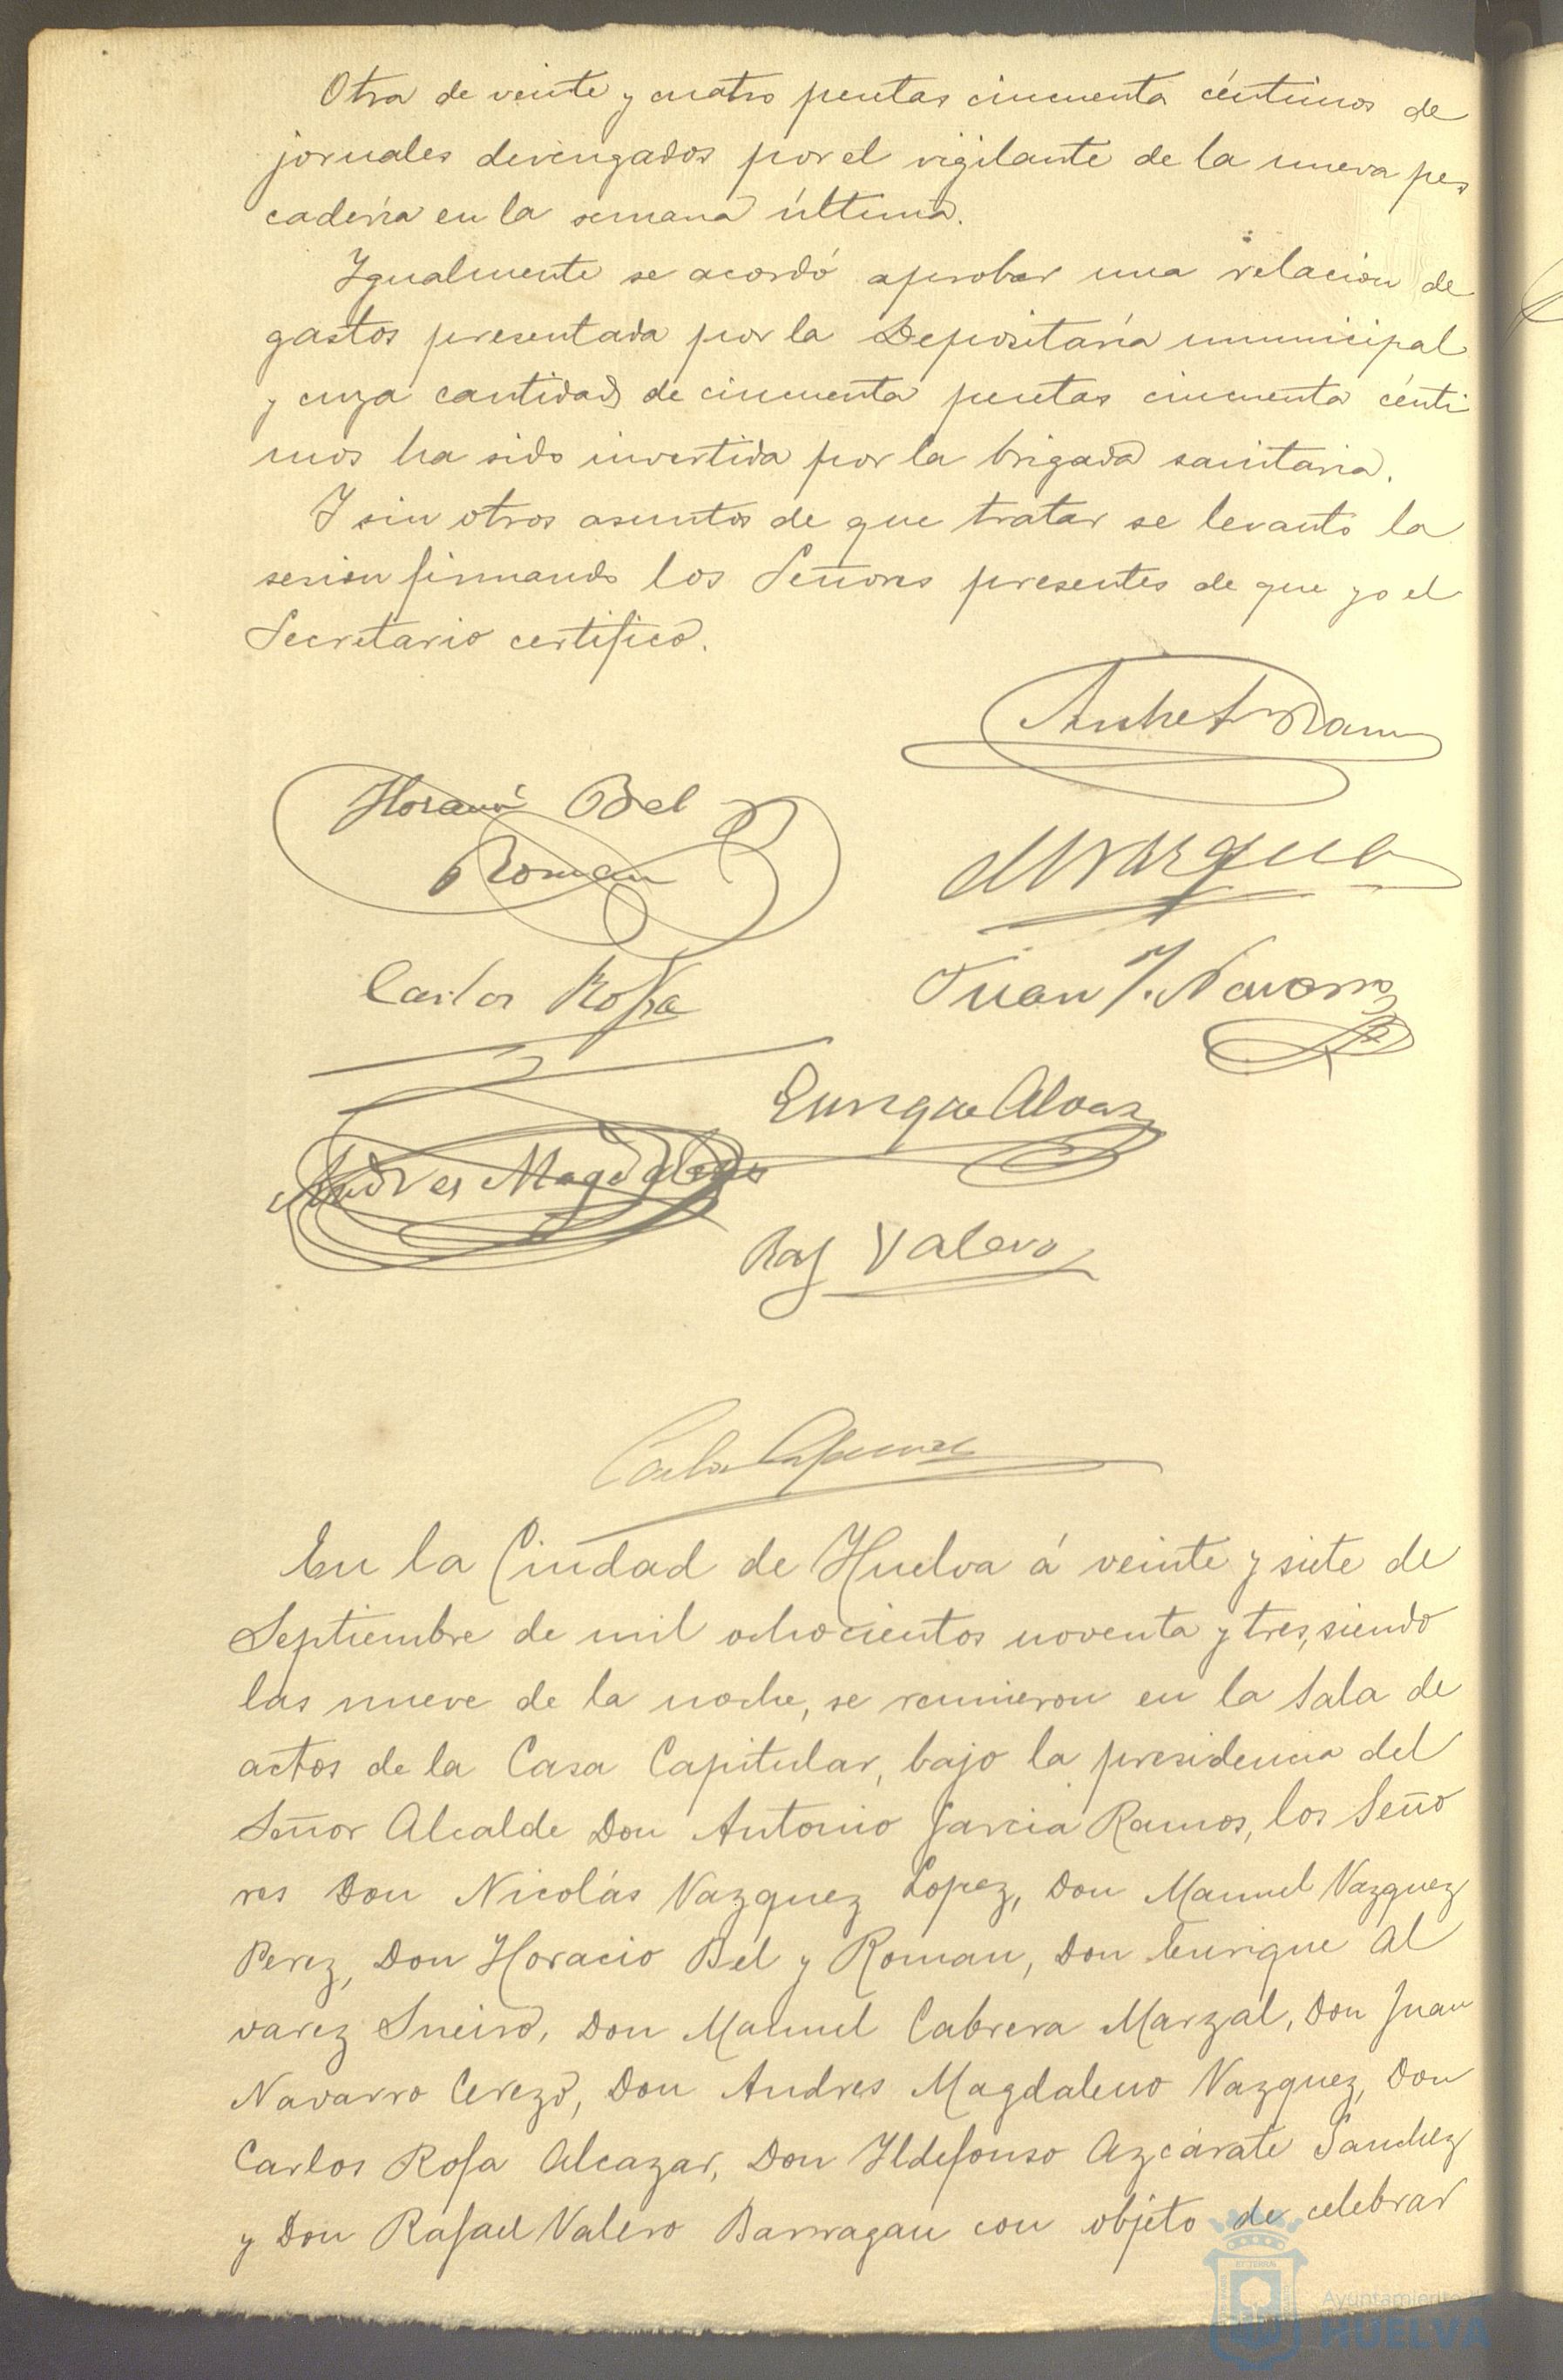 Otra de veinte y cuatro pesetas cincuenta céntimos de
jornales devengados por el vigilante de la nueva pes
cadería en la semana última.
Igualmente se acordó aprobar una relacion de
gastos presentada por la Depositaría municipal
y cuya cantidad de cincuenta pesetas cincuenta cénti
mos ha sido invertida por la brigada sanitaria.
Y sin otros asuntos de que tratar se levantó la
sesion firmando los Señores presentes de que yo el
Secretario certifico.
Horacio Bel
Roman
MVazquez
Carlos Rofa
Juan J. Navarro
Enrique Alvarez
Andres Magdaleno
Raf Valero
En la Ciudad de Huelva á veinte y siete de
Septiembre de mil ochocientos noventa y tres, siendo
las nueve de la noche, se reunieron en la Sala de
actos de la Casa Capitular, bajo la presidencia del
Señor Alcalde Don Antonio Garcia Ramos, los Seño
res Don Nicolás Vazquez Lopez, Don Manuel Vazquez
Perez, Don Horacio Bel y Roman, Don Enrique Al
varez Sneiro, Don Manuel Cabrera Marzal, Don Juan
Navarro Cerezo, Don Andres Magdaleno Vazquez, Don
Carlos Rofa Alcazar, Don Ildefonso Azcárate Sanchez
y Don Rafael Valero Barragan con objeto de celebrar
Ayuntamiento de
HUELVA